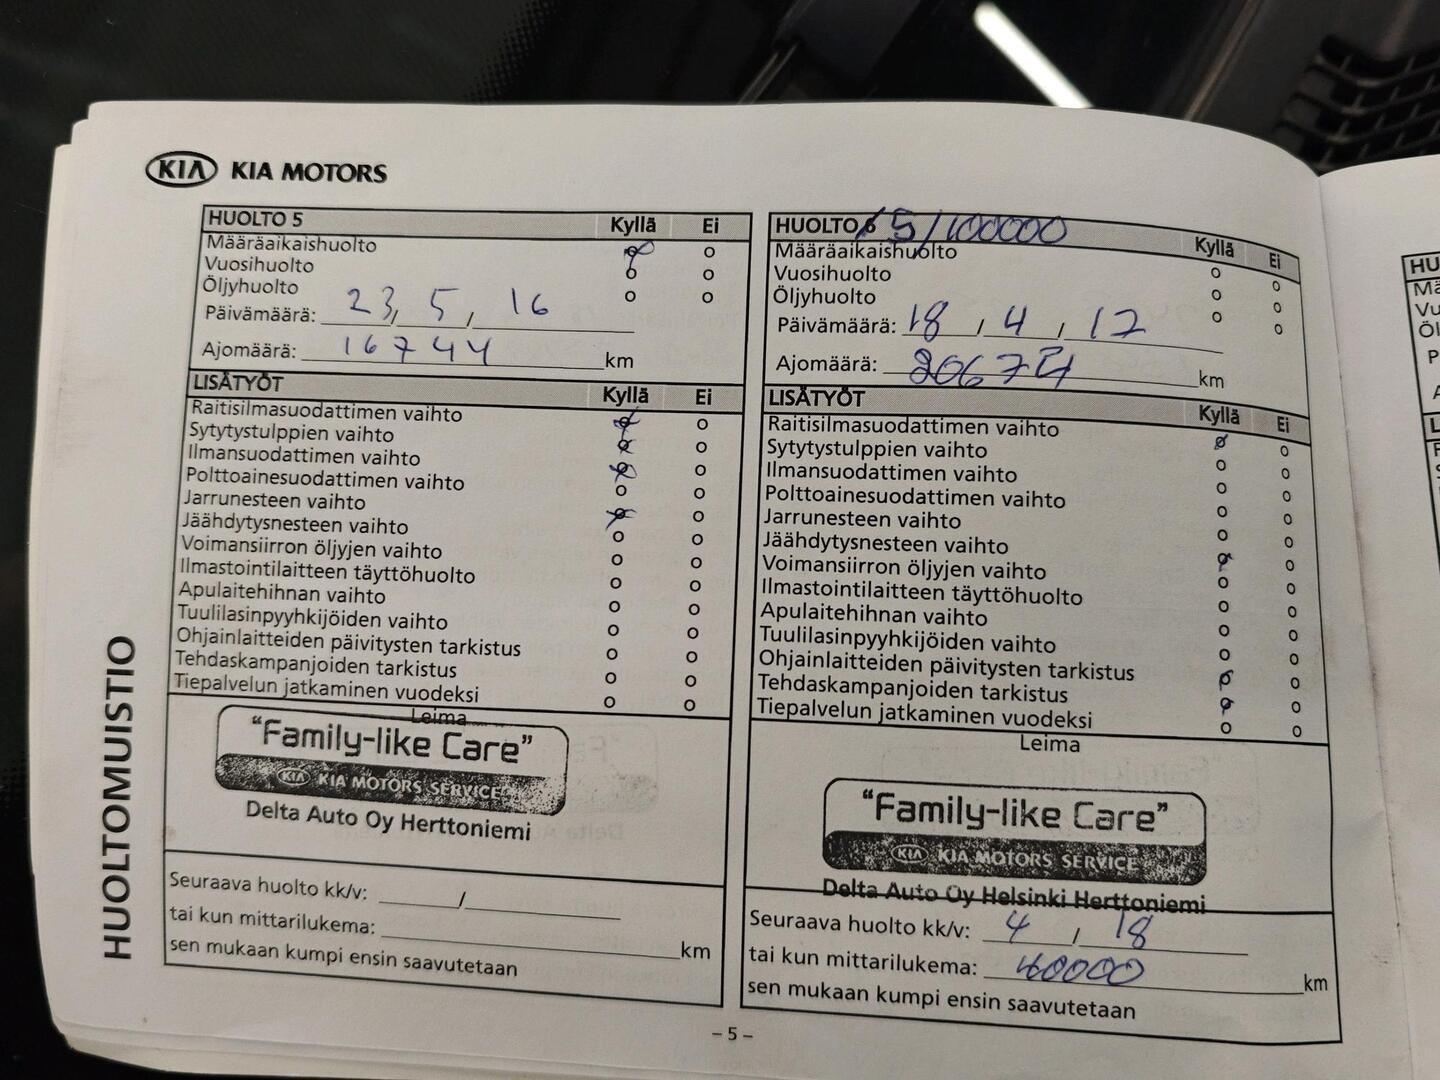 KIA KIA MOTORS
HUOLTO 5 Kyllä Ei
Määräaikaishuolto o o
Vuosihuolto o o
Öljyhuolto o o
Päivämäärä: 23, 5, 16
Ajomäärä: 16744 km
LISÄTYÖT Kyllä Ei
Raitisilmasuodattimen vaihto o o
Sytytystulppien vaihto o o
Ilmansuodattimen vaihto o o
Polttoainesuodattimen vaihto o o
Jarrunesteen vaihto o o
Jäähdytysnesteen vaihto o o
Voimansiirron öljyjen vaihto o o
Ilmastointilaitteen täyttöhuolto o o
Apulaitehihnan vaihto o o
Tuulilasinpyyhkijöiden vaihto o o
Ohjainlaitteiden päivitysten tarkistus o o
Tehdaskampanjoiden tarkistus o o
Tiepalvelun jatkaminen vuodeksi o o
Leima
“Family-like Care”
KIA KIA MOTORS SERVICE
Delta Auto Oy Herttoniemi
Seuraava huolto kk/v: /
tai kun mittarilukema: km
sen mukaan kumpi ensin saavutetaan
HUOLTO 6 5/100000 Kyllä Ei
Määräaikaishuolto o o
Vuosihuolto o o
Öljyhuolto o o
Päivämäärä: 18 / 4 / 17
Ajomäärä: km
LISÄTYÖT Kyllä Ei
Raitisilmasuodattimen vaihto o o
Sytytystulppien vaihto o o
Ilmansuodattimen vaihto o o
Polttoainesuodattimen vaihto o o
Jarrunesteen vaihto o o
Jäähdytysnesteen vaihto o o
Voimansiirron öljyjen vaihto o o
Ilmastointilaitteen täyttöhuolto o o
Apulaitehihnan vaihto o o
Tuulilasinpyyhkijöiden vaihto o o
Ohjainlaitteiden päivitysten tarkistus o o
Tehdaskampanjoiden tarkistus o o
Tiepalvelun jatkaminen vuodeksi o o
Leima
“Family-like Care”
KIA KIA MOTORS SERVICE
Delta Auto Oy Helsinki Herttoniemi
Seuraava huolto kk/v: 4 / 18
tai kun mittarilukema: 40000 km
sen mukaan kumpi ensin saavutetaan
HUOLTOMUISTIO
– 5 –